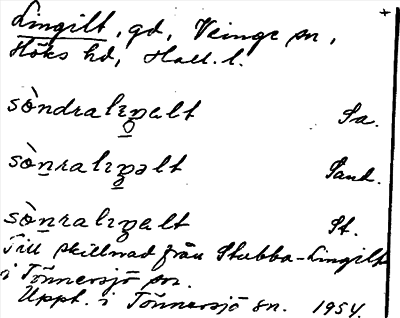 Lingilt, gd, Veinge sn,
Höks hd, Hall. l.
sòndralıŋalt Sa.
sònralıŋəlt Sand.
sònralıŋalt St.
Till skillnad från Stubba-Lingilt
i Tönnersjö sn.
Uppt. i Tönnersjö sn. 1954.